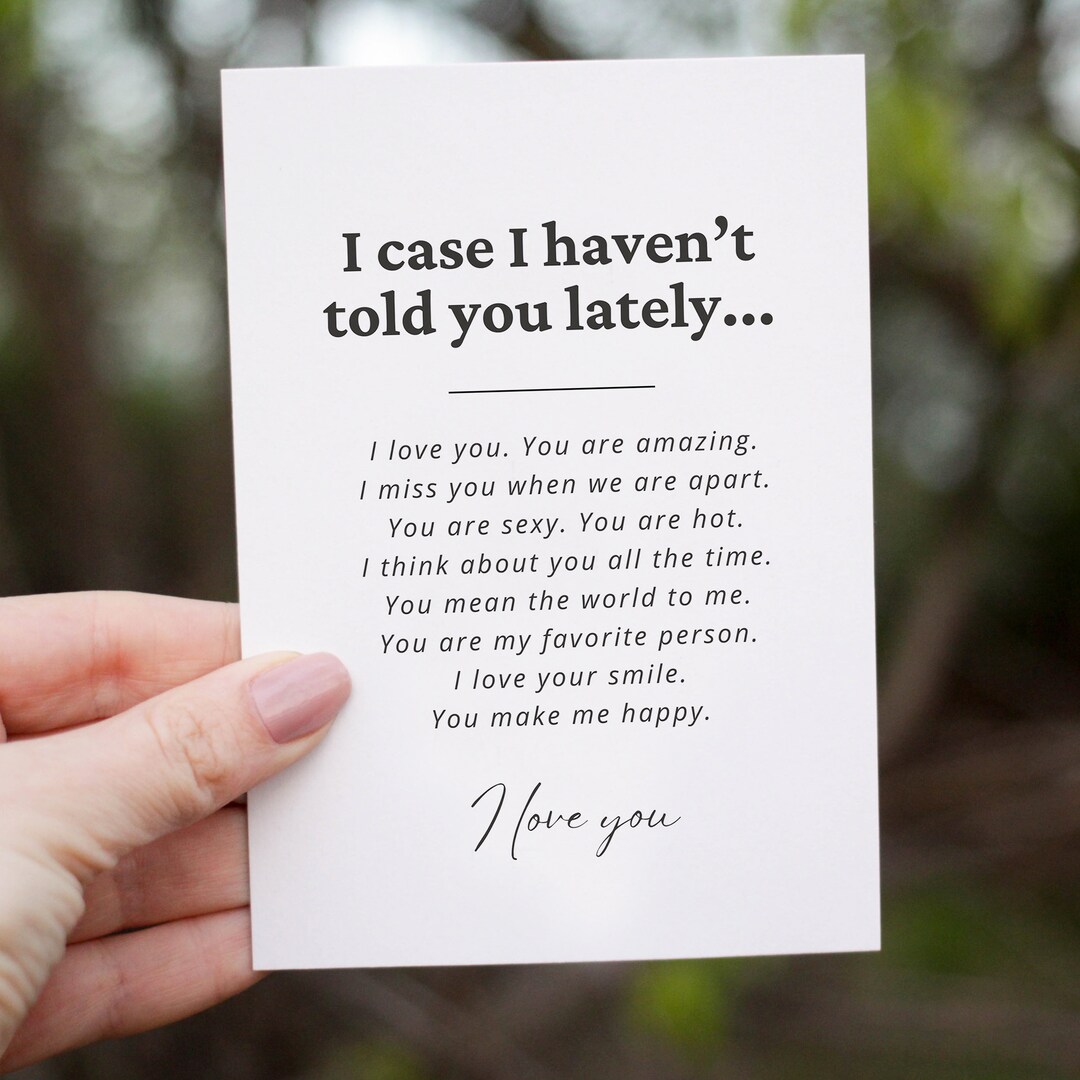 I case I haven’t
told you lately...
I love you. You are amazing.
I miss you when we are apart.
You are sexy. You are hot.
I think about you all the time.
You mean the world to me.
You are my favorite person.
I love your smile.
You make me happy.
I love you